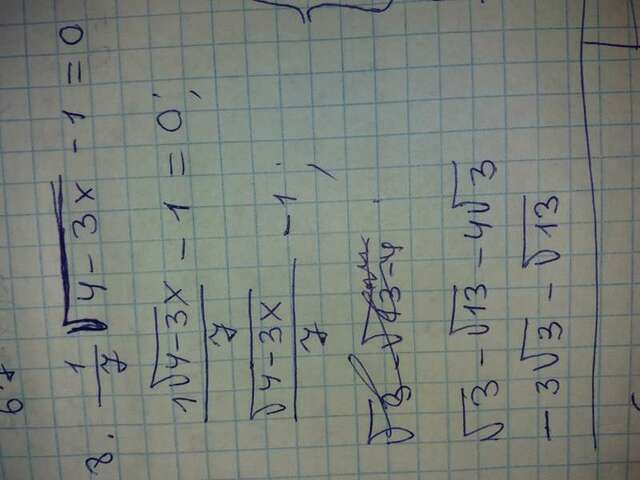 8. 1/7 √(4-3x) - 1 = 0
1√(4-3x)/7 - 1 = 0;
√(4-3x)/7 - 1;
√3 - √13 - 4√3
- 3√3 - √13